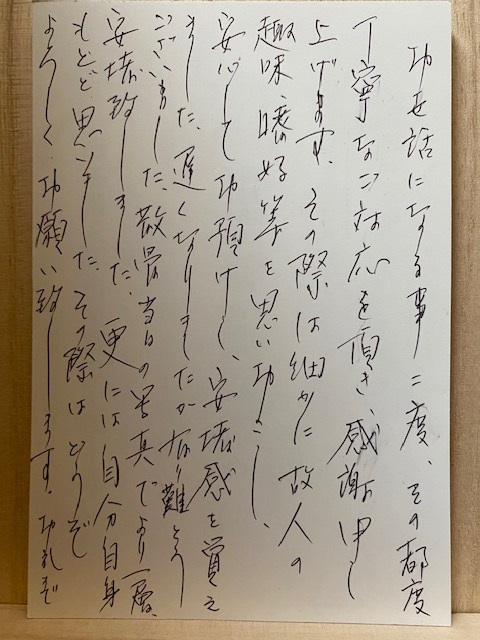 お世話になる事二度、その都度
丁寧なご対応を頂き、感謝申し
上げます。その際は細かに故人の
趣味、嗜好等を思いおこし、
安心してお預けし、安堵感を覚え
ました。遅くなりましたが有り難とう
ございました。散骨当日の写真でより一層、
安堵致しました。更には自分自身
もどど思いました。その際はどうぞ
よろしくお願い致します。お礼まで